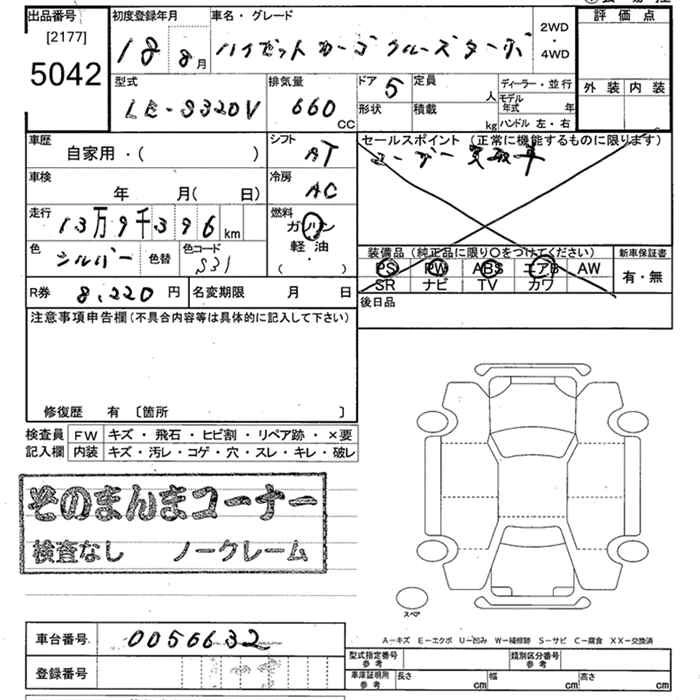 出品番号 初度登録年月 車名・グレード 評価点
[2177]
5042
18 8月 ハイゼットカーゴクルーズターボ 2WD・4WD
外装 内装
型式 排気量 ドア 5 定員 人 ディーラー・並行
LE-S320V 660cc 形状 積載 kg モデル年式 年
ハンドル 左・右
車歴 シフト セールスポイント (正常に機能するものに限ります)
自家用・( ) AT
車検 冷房
年 月( 日) AC
走行 燃料
13万9千396km ガソリン
色 シルバー 色替 色コード S31 軽油
・
( )
装備品(純正品に限り○をつけてください) 新車保証書
PS PW ABS エアB AW 有・無
SR ナビ TV カワ
R券 8,220円 名変期限 月 日 後日品
注意事項申告欄(不具合内容等は具体的に記入して下さい)
修復歴 有 [箇所 ]
検査員 FW キズ・飛石・ヒビ割・リペア跡・×要
記入欄 内装 キズ・汚レ・コゲ・穴・スレ・キレ・破レ
そのまんまコーナー
検査なし ノークレーム
スペア
A－キズ E－エクボ U－凹み W－補修跡 S－サビ C－腐食 XX－交換済
車台番号 0056632
型式指定番号 参考 類別区分番号 参考
登録番号
車庫証明用 参考 長さ cm 幅 cm 高さ cm